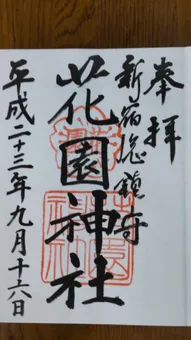 奉拝
新宿総鎮守
花園神社
平成二十三年九月十六日